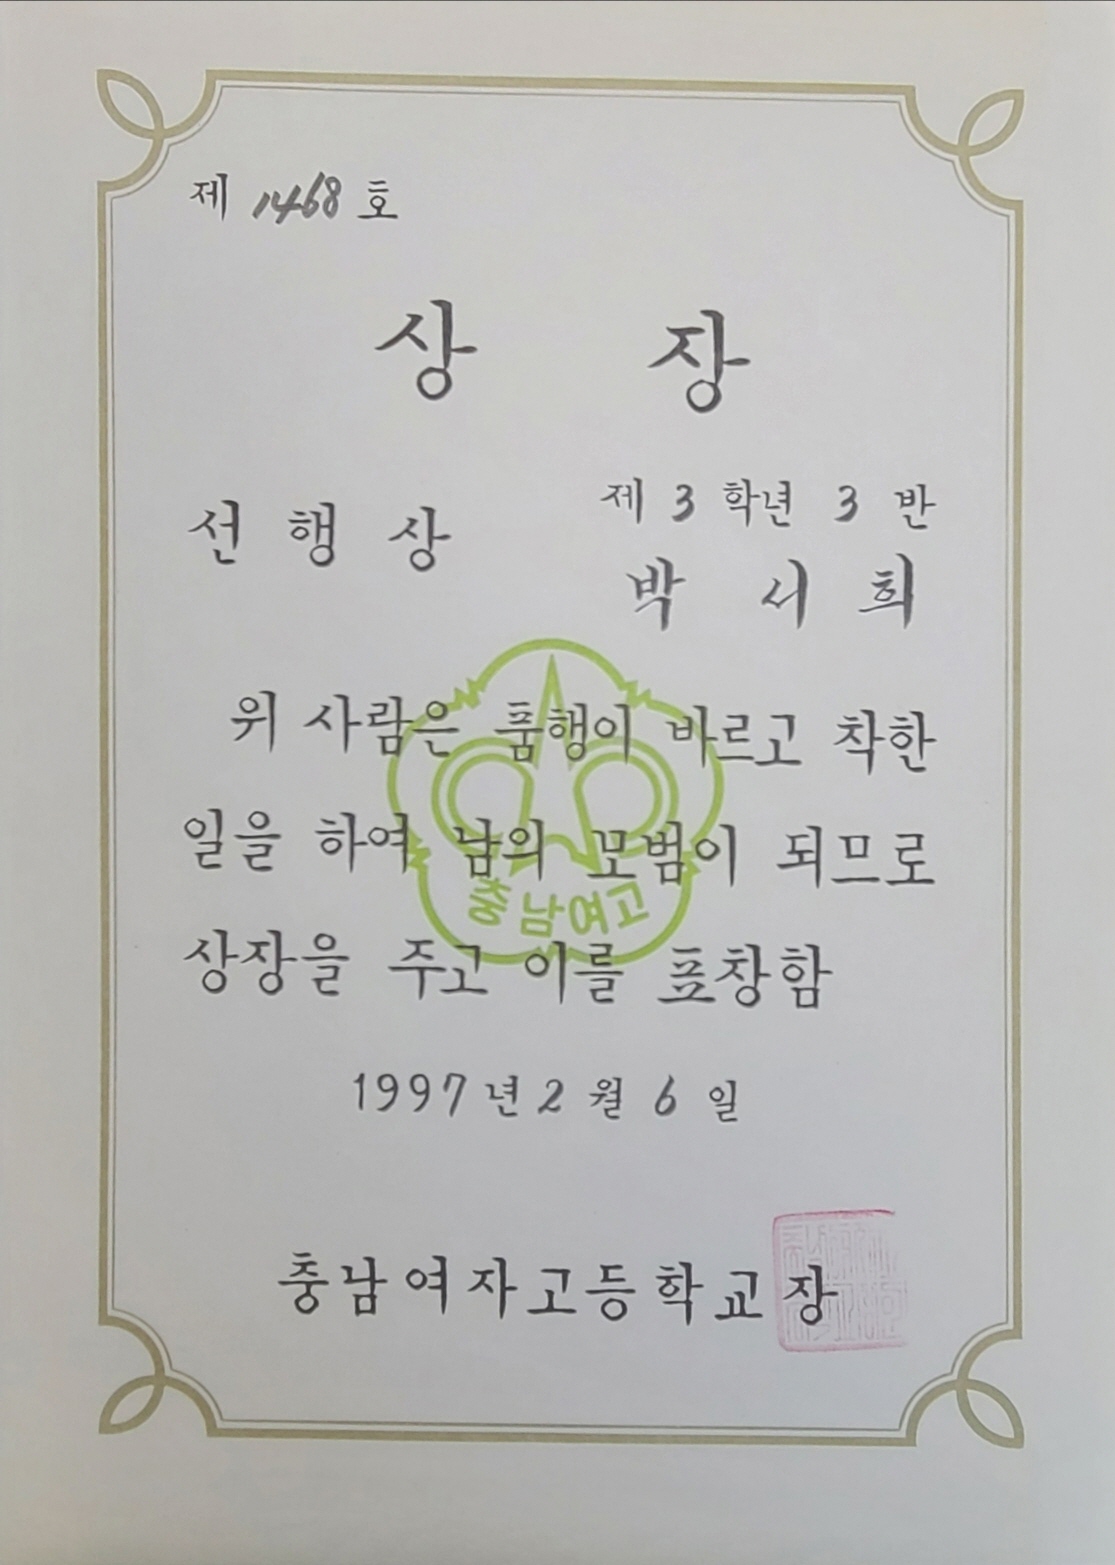 제 1468 호
상 장
선 행 상
제 3 학년 3 반
박 시 희
위 사람은 품행이 바르고 착한
일을 하여 남의 모범이 되므로
상장을 주고 이를 표창함
충남여고
1997년 2 월 6 일
충남여자고등학교장